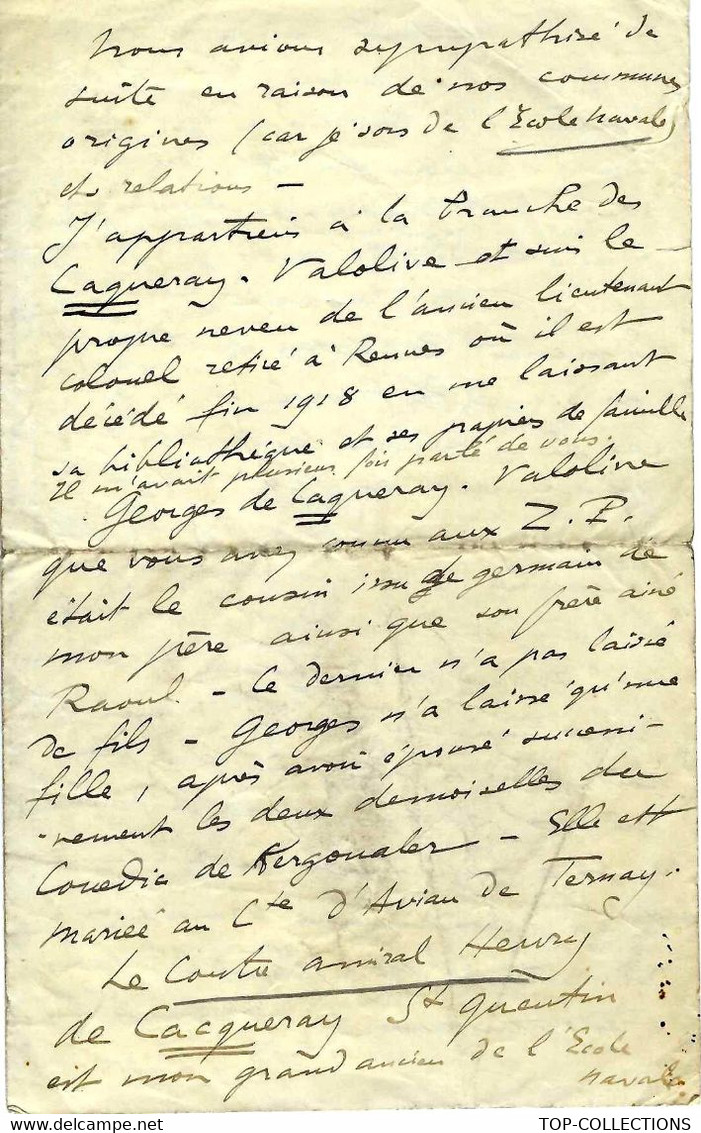 Nous avions sympathisé de
suite en raison de nos communes
origines (car je sors de l'École navale)
et relations –
J'appartiens à la branche des
Caqueray. Valolive et suis le
propre neveu de l'ancien lieutenant
colonel retiré à Rennes où il est
décédé fin 1918 en me laissant
sa bibliothèque et ses papiers de famille
Il m'avait plusieurs fois parlé de vous.
Georges de Caqueray. Valolive
que vous avez connu aux Z. P.
était le cousin issu de germain de
mon père ainsi que son frère ainé
Raoul – Ce dernier n'a pas laissé
de fils – Georges n'a laissé qu'une
fille, après avoir épousé successi-
-vement les deux demoiselles du
Couedic de Kergoualer – Elle est
mariée au Cte d'Avian de Ternay.
Le Contre amiral Henry
de Cacqueray St Quentin
est mon grand ancien de l'École
navale
TOP-COLLECTIONS